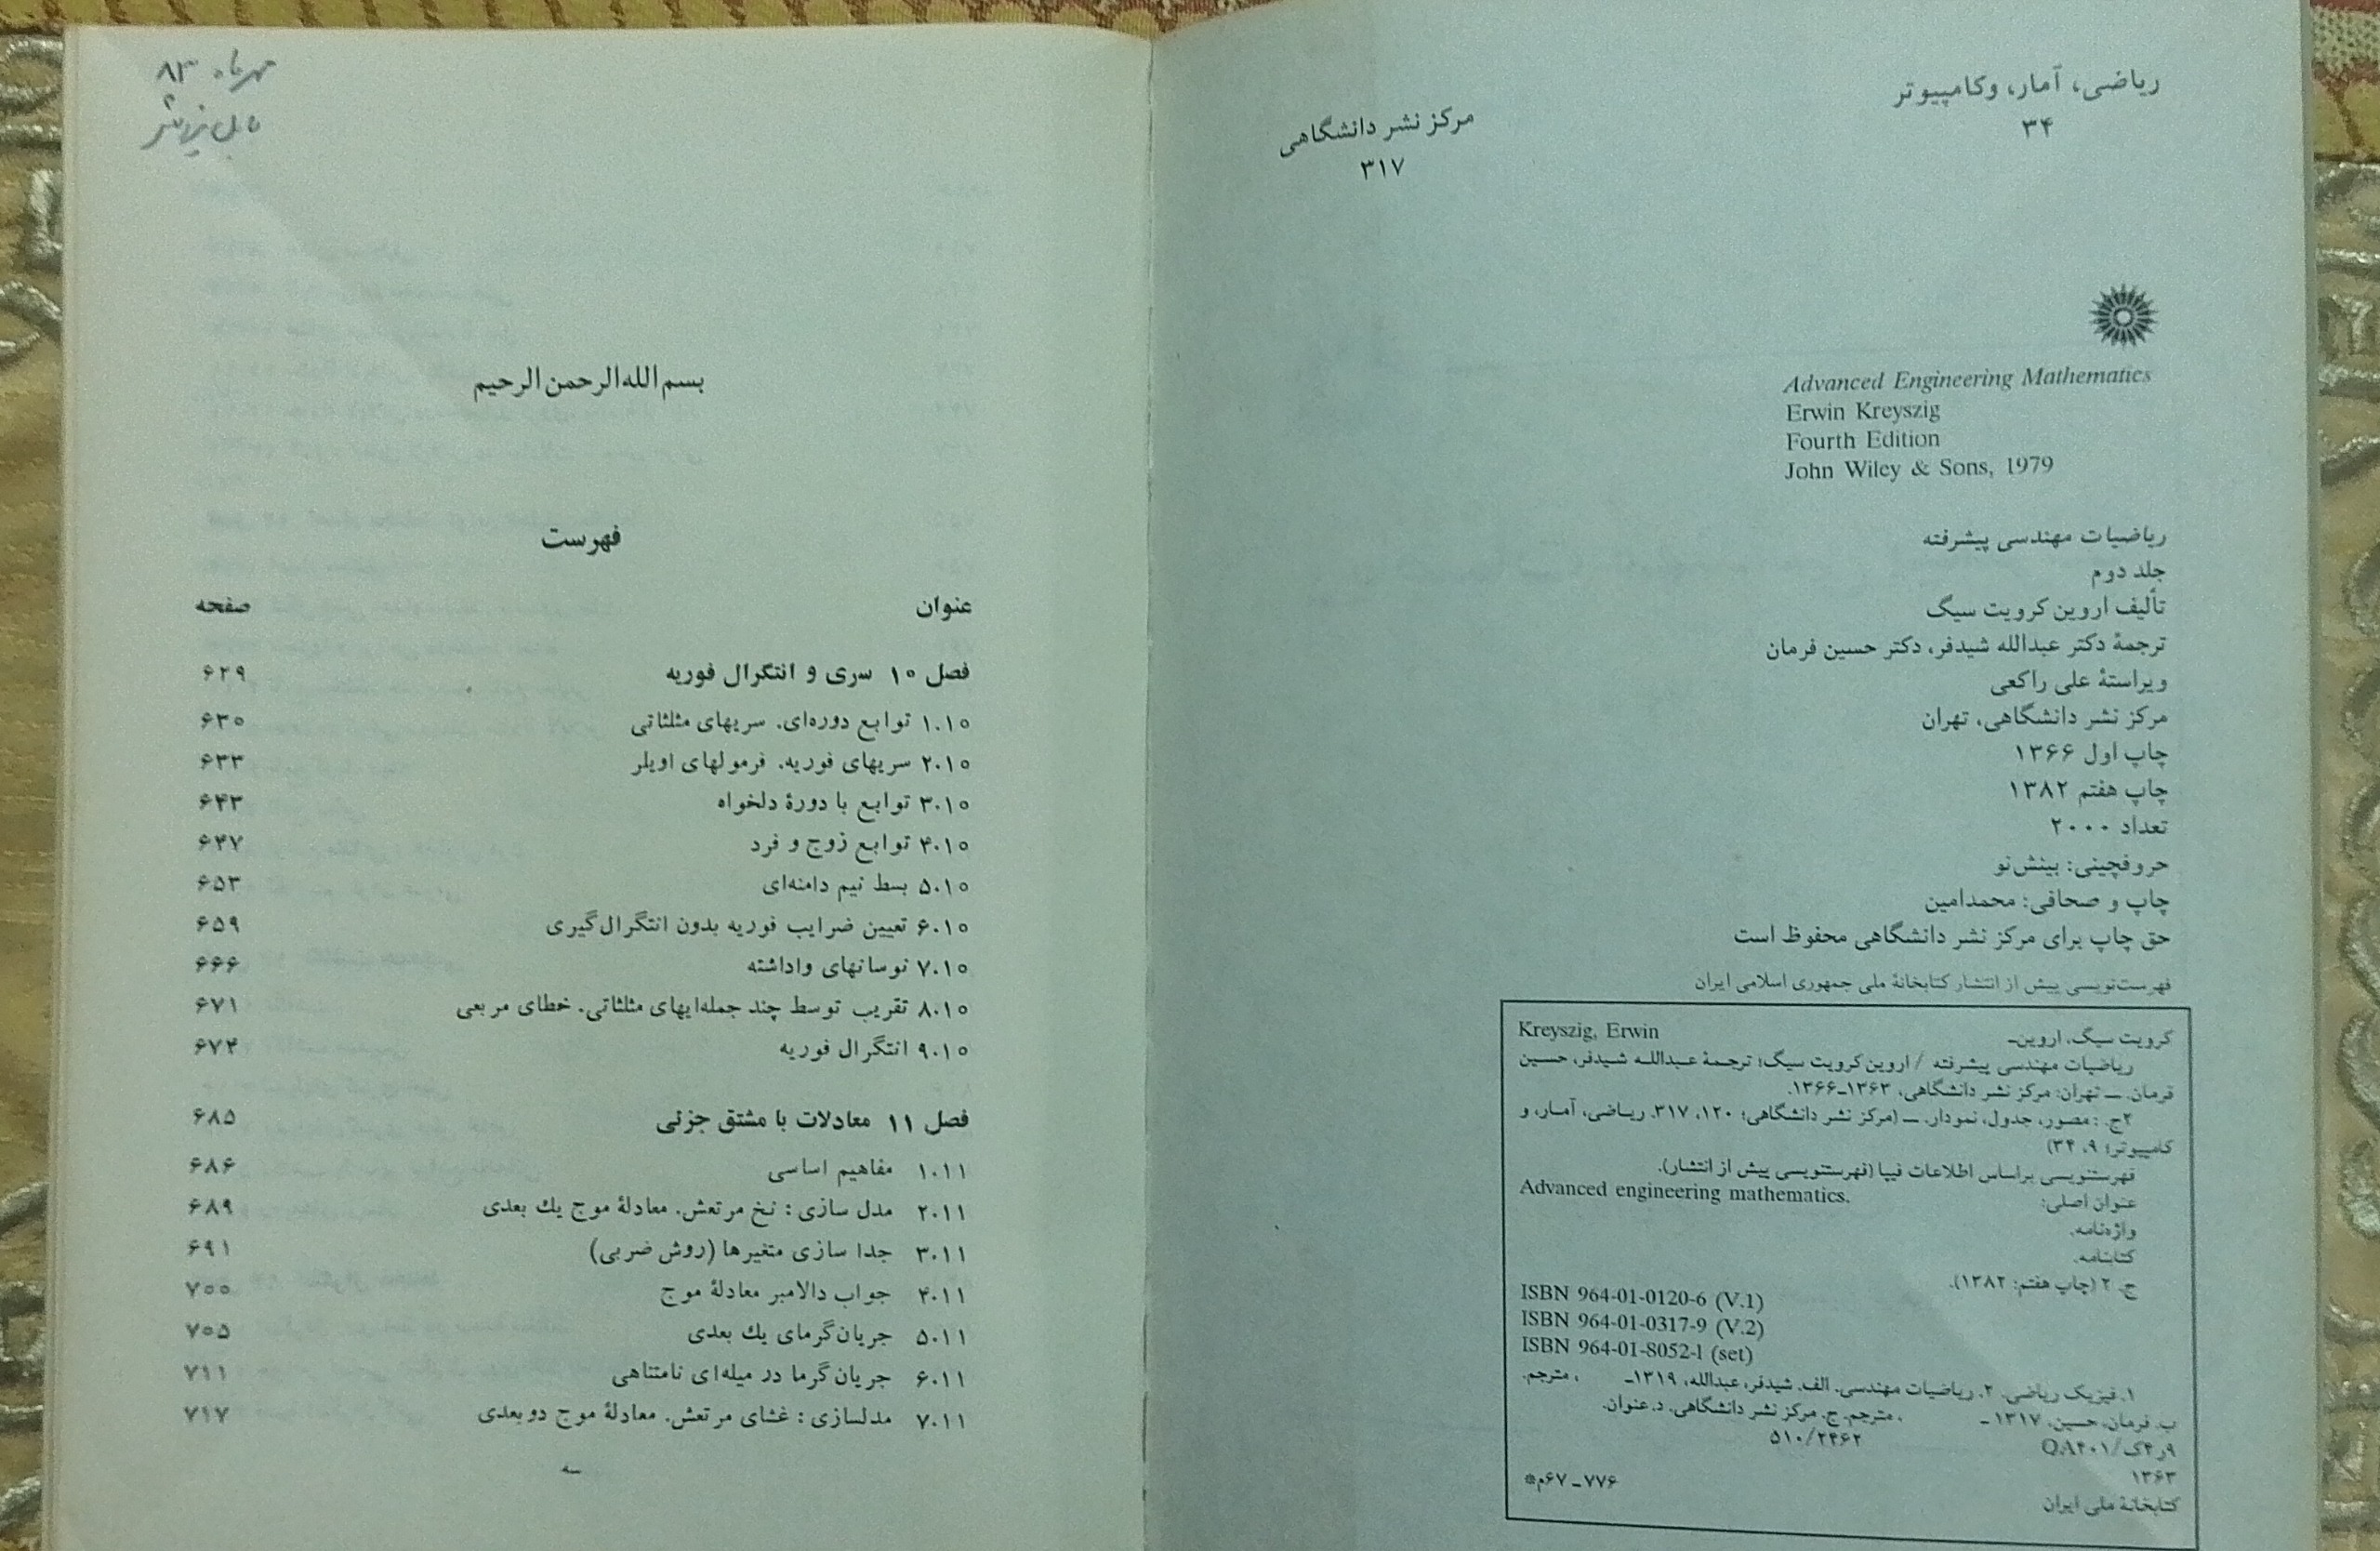 ریاضی، آمار، وکامپیوتر
۳۴
مرکز نشر دانشگاهی
۳۱۷
Advanced Engineering Mathematics
Erwin Kreyszig
Fourth Edition
John Wiley & Sons, 1979
ریاضیات مهندسی پیشرفته
جلد دوم
تألیف اروین کرویت سیگ
ترجمهٔ دکتر عبدالله شیدفر، دکتر حسین فرمان
ویراستهٔ علی راکعی
مرکز نشر دانشگاهی، تهران
چاپ اول ۱۳۶۶
چاپ هفتم ۱۳۸۲
تعداد ۲۰۰۰
حروفچینی: بینش‌نو
چاپ و صحافی: محمدامین
حق چاپ برای مرکز نشر دانشگاهی محفوظ است
فهرست‌نویسی پیش از انتشار کتابخانهٔ ملی جمهوری اسلامی ایران
کرویت سیگ، اروین‌ـ Kreyszig, Erwin
ریاضیات مهندسی پیشرفته / اروین کرویت سیگ؛ ترجمهٔ عبدالله شیدفر، حسین
فرمان. ـ تهران: مرکز نشر دانشگاهی، ۱۳۶۳ـ۱۳۶۶.
۲ج. : مصور، جدول، نمودار. ـ (مرکز نشر دانشگاهی؛ ۱۲۰، ۳۱۷. ریاضی، آمار، و
کامپیوتر؛ ۹، ۳۴)
فهرستنویسی براساس اطلاعات فیپا (فهرستنویسی پیش از انتشار).
عنوان اصلی: Advanced engineering mathematics.
واژه‌نامه.
کتابنامه.
ج. ۲ (چاپ هفتم: ۱۳۸۲).
ISBN 964-01-0120-6 (V.1)
ISBN 964-01-0317-9 (V.2)
ISBN 964-01-8052-1 (set)
۱. فیزیک ریاضی. ۲. ریاضیات مهندسی. الف. شیدفر، عبدالله، ۱۳۱۹ـ ، مترجم.
ب. فرمان، حسین، ۱۳۱۷ ـ ، مترجم. ج. مرکز نشر دانشگاهی. د. عنوان.
۹ر۴ک/QA۴۰۱ ۵۱۰/۲۴۶۲
۱۳۶۳
کتابخانهٔ ملی ایران ۷۷۶ ـ ۶۷م*
مهرماه ۸۳
بسم الله الرحمن الرحیم
فهرست
عنوان صفحه
فصل ۱۰ سری و انتگرال فوریه ۶۲۹
۱.۱۰ توابع دوره‌ای. سریهای مثلثاتی ۶۳۰
۲.۱۰ سریهای فوریه. فرمولهای اویلر ۶۳۳
۳.۱۰ توابع با دورهٔ دلخواه ۶۴۳
۴.۱۰ توابع زوج و فرد ۶۴۷
۵.۱۰ بسط نیم دامنه‌ای ۶۵۳
۶.۱۰ تعیین ضرایب فوریه بدون انتگرال‌گیری ۶۵۹
۷.۱۰ نوسانهای واداشته ۶۶۶
۸.۱۰ تقریب توسط چند جمله‌ایهای مثلثاتی. خطای مربعی ۶۷۱
۹.۱۰ انتگرال فوریه ۶۷۴
فصل ۱۱ معادلات با مشتق جزئی ۶۸۵
۱.۱۱ مفاهیم اساسی ۶۸۶
۲.۱۱ مدل سازی : نخ مرتعش. معادلهٔ موج یك بعدی ۶۸۹
۳.۱۱ جدا سازی متغیرها (روش ضربی) ۶۹۱
۴.۱۱ جواب دالامبر معادلهٔ موج ۷۰۰
۵.۱۱ جریان گرمای یك بعدی ۷۰۵
۶.۱۱ جریان گرما در میله‌ای نامتناهی ۷۱۱
۷.۱۱ مدلسازی : غشای مرتعش. معادلهٔ موج دو بعدی ۷۱۷
سه